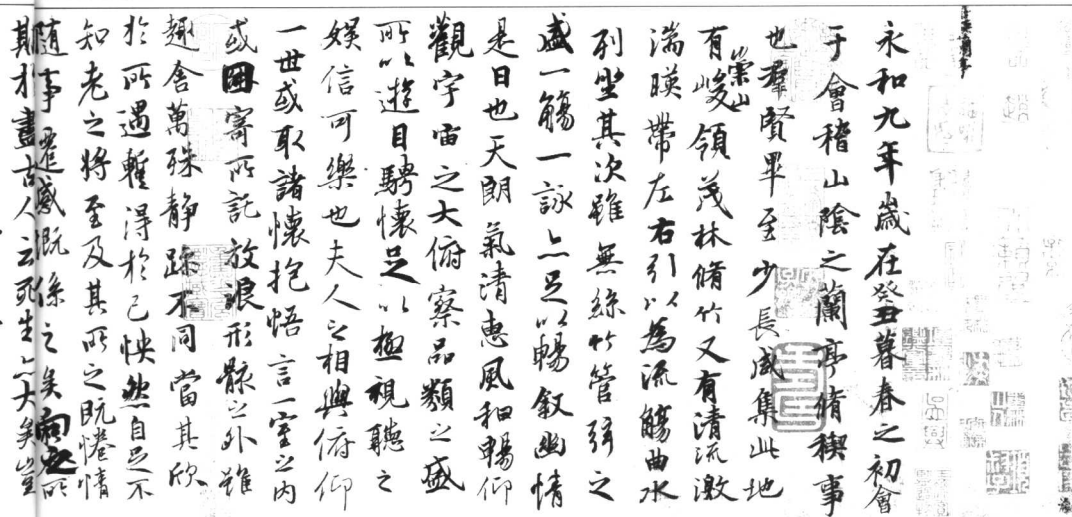 永和九年歲在癸丑暮春之初會
于會稽山陰之蘭亭脩稧事
也羣賢畢至少長咸集此地
有崇山峻領茂林脩竹又有清流激
湍暎帶左右引以為流觴曲水
列坐其次雖無絲竹管弦之
盛一觴一詠亦足以暢敘幽情
是日也天朗氣清惠風和暢仰
觀宇宙之大俯察品類之盛
所以遊目騁懷足以極視聽之
娛信可樂也夫人之相與俯仰
一世或取諸懷抱悟言一室之內
或因寄所託放浪形骸之外雖
趣舍萬殊靜躁不同當其欣
於所遇暫得於己怏然自足不
知老之將至及其所之既惓情
隨事遷感慨係之矣向之所
期於盡古人云死生亦大矣豈